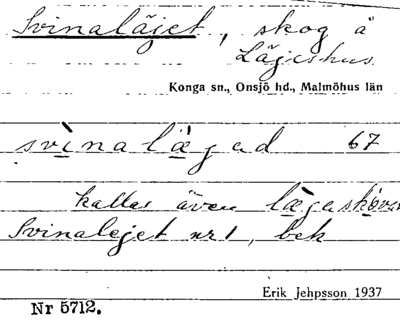 Svinaläjet, skog å
Läjeshus.
Konga sn., Onsjö hd., Malmöhus län
svìnalǽgəd 67
kallas även lǽgaskowən
Svinalejet nr 1, bek
Erik Jehpsson 1937
Nr 5712.